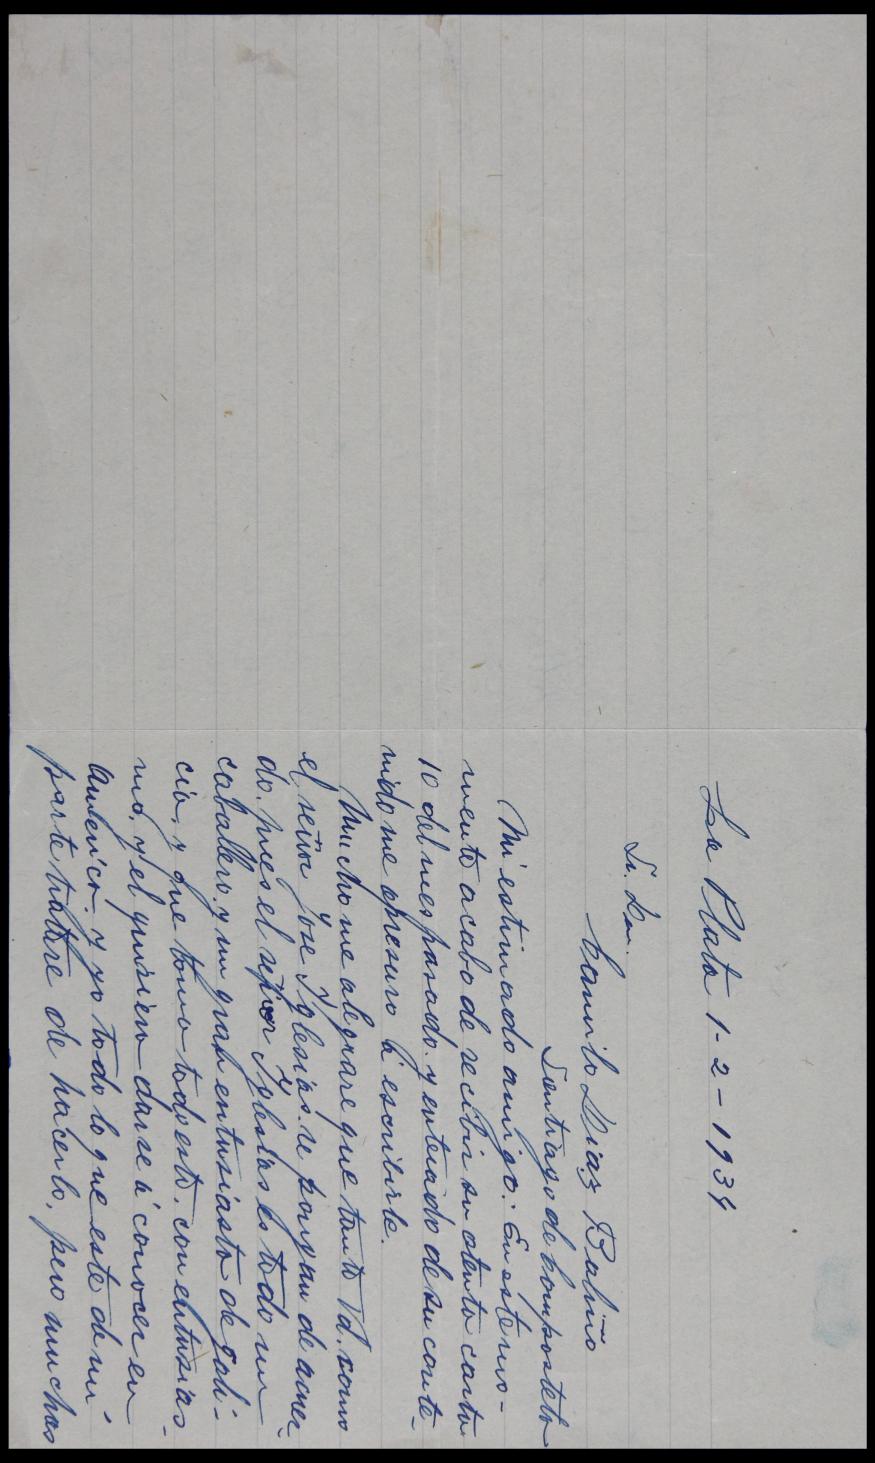 La Plata 1-2-1934
Sr. Dn.
Camilo Diaz Baliño
Santiago de Compostela
Mi estimado amigo: En este mo-
mento acabo de recibir su atenta carta
10 del mes pasado. y enterado de su conte-
nido me apresuro á escribirle.
Mucho me alegrare que tanto Vd. como
el señor Jose Yglesias se pongan de acuer-
do. pues el señor Yglesias es todo un
caballero. y un gran entusiasta de Gali-
cia, y que toma todo esto. con entusias-
mo, y el quisiera darse á conocer en
America. y yo todo lo que este de mi
parte tratare de hacerlo, pero muchas